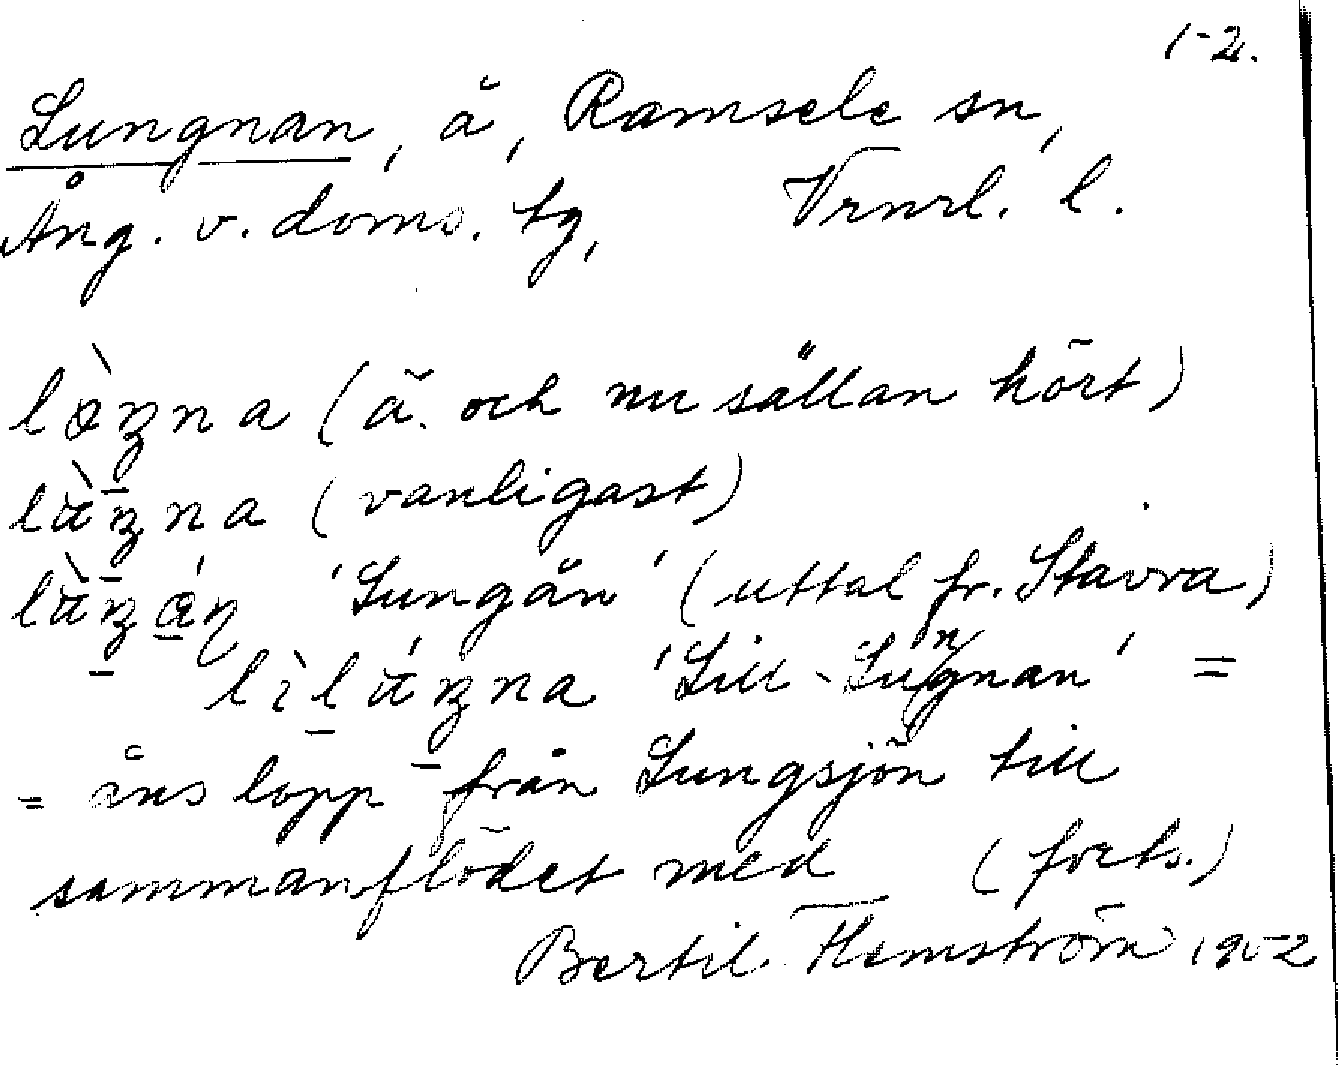 1-2.
Lungnan, å, Ramsele sn,
Ång. v. doms. tg, Vrnrl. l.
lòŋna (ä. och nu sällan hört)
(vanligast)
'Lungån' (uttal fr. Stavra)
'Lill-Lungnan' =
= åns lopp från Lungsjön till
sammanflödet med (forts.)
Bertil Flemström 1952